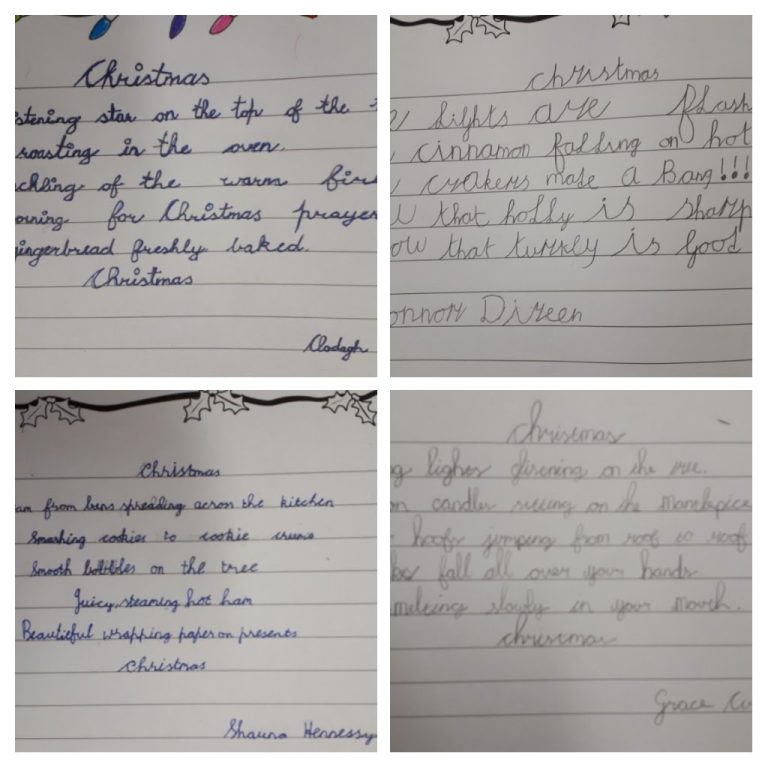 Christmas
stening star on the top of the
roasting in the oven.
ckling of the warm fire
orning for Christmas prayer
gingerbread freshly baked.
Christmas
Clodagh
christmas
lights are flash
cinnamon falling on hot
crakers made a Bang!!!
that holly is sharp
ow that turkly is good
onnor Direen
Christmas
am from buns spreading across the kitchen
Smashing cookies to cookie
Smooth on the tree
Juicy, steaming hot ham
Beautiful wrapping paper on presents
Christmas
Shauna Hennessy
christmas
on the tree.
candles on the
hoofs jumping from roof to roof
fall all over your hands
melting slowly in your mouth.
christmas
Grace